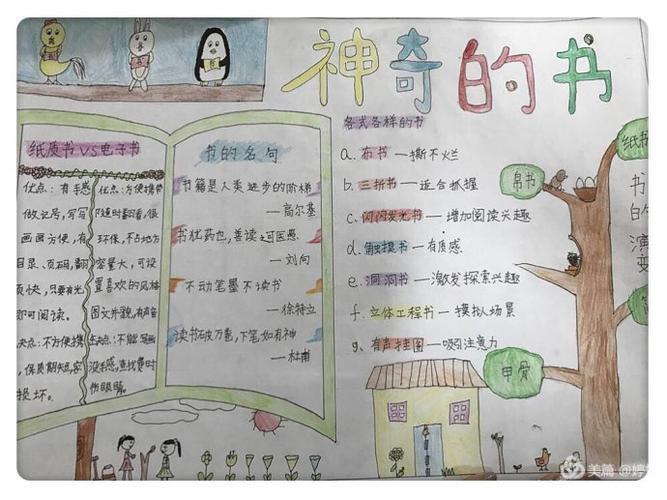 神奇的书
纸质书VS电子书
优点：有手感
做文房，写写
画画方便，有
目录、页码，翻
页快，只要有光
即可阅读。
缺点：不方便携
，保质期短，容
损坏。
优点：方便携带
随时翻看，很
环保，不占地方
容量大，可设
置喜欢的风格
图文并貌，有声音
缺点：不能写画
没手感，查找费时
伤眼睛。
书的名句
书籍是人类进步的阶梯
—高尔基
书犹药也，善读之可医愚
—刘向
不动笔墨不读书
—徐特立
读书破万卷，下笔如有神
—杜甫
各式各样的书
a. 布书—撕不烂
b. 三折书—适合抓握
c. 闪闪发光书—增加阅读兴趣
d. 触摸书—有质感
e. 洞洞书—激发探索兴趣
f. 立体工程书—模拟场景
g. 有声挂图—吸引注意力
纸书
帛书
甲骨
书的演变
美篇